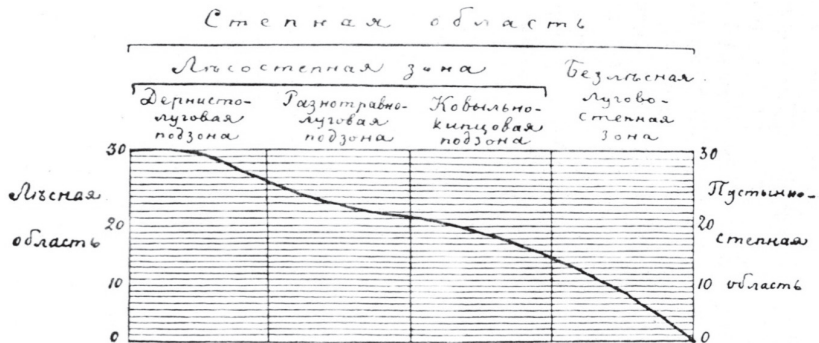 Степная область
Лѣсостепная зона
Безлѣсная
лугово-
степная
зона
Дернисто-
луговая
подзона
Разнотравно-
луговая
подзона
Ковыльно-
кипцовая
подзона
30
20
10
0
Лѣсная
область
30
20
10
0
Пустынно-
степная
область